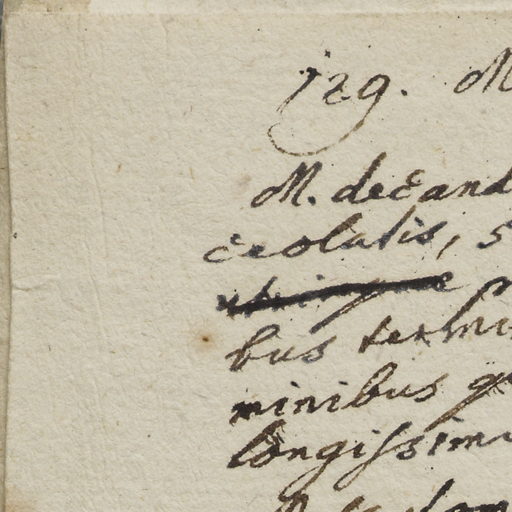 129. M
M. decand
ceolatis, 5
utrinque
bus termi
minibus
longissimi